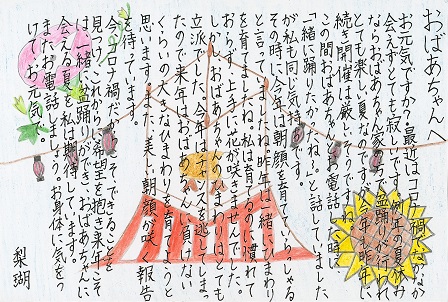 おばあちゃんへ
お元気ですか？最近はコロナ禍でなかなか
会えずとても寂しいです。例年の夏休み
ならおばあちゃん家の近くで盆踊りが行われ
とても楽しい夏なのですが、今年も昨年に
続き開催は厳しいそうですね。
この間おばあちゃんとお電話した時に
「一緒に踊りたかったね。」と話していました
が私も同じ気持ちです。
その時に、今年は朝顔を育てていらっしゃる
と言っていましたね。昨年は一緒にひまわり
を育てましたが、私は育てるのに慣れて
おらず、上手に花が咲きませんでした。
しかし、おばあちゃんのひまわりはとても
立派で、今年はチャンスを逃してしまっ
たので来年はおばあちゃんに負けない
くらいの大きなひまわりを育てようと
思います。また、美しい朝顔が咲く報告
を待っています。
今のコロナ禍だからこそできることを
見つけ、これからの希望を抱き来年こそ
は一緒に盆踊りができ、おばあちゃんに
会える夏を私は期待しています。
またお電話しましょう。お身体に気をつ
けてお元気で。
梨瑚